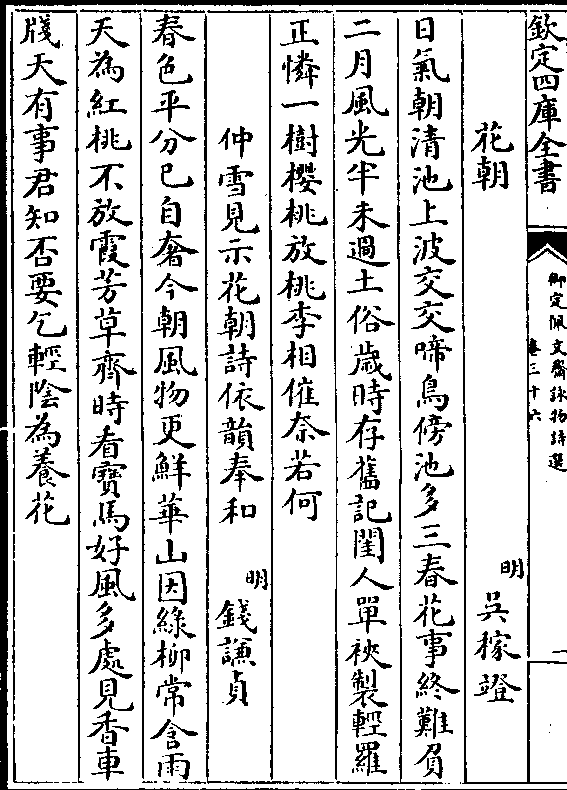 欽定四庫全書
御定佩文齋詠物詩選
卷三十六
一
花朝
明
吳稼竳
日氣朝清池上波交交啼鳥傍池多三春花事終難負
二月風光半未過土俗歲時存舊記閨人單裌製輕羅
正憐一樹櫻桃放桃李相催奈若何
仲雪見示花朝詩依韻奉和
明
錢謙貞
春色平分已自奢今朝風物更鮮華山因綠柳常含雨
天為紅桃不放霞芳草齊時看寶馬好風多處見香車
牋天有事君知否要乞輕陰為養花